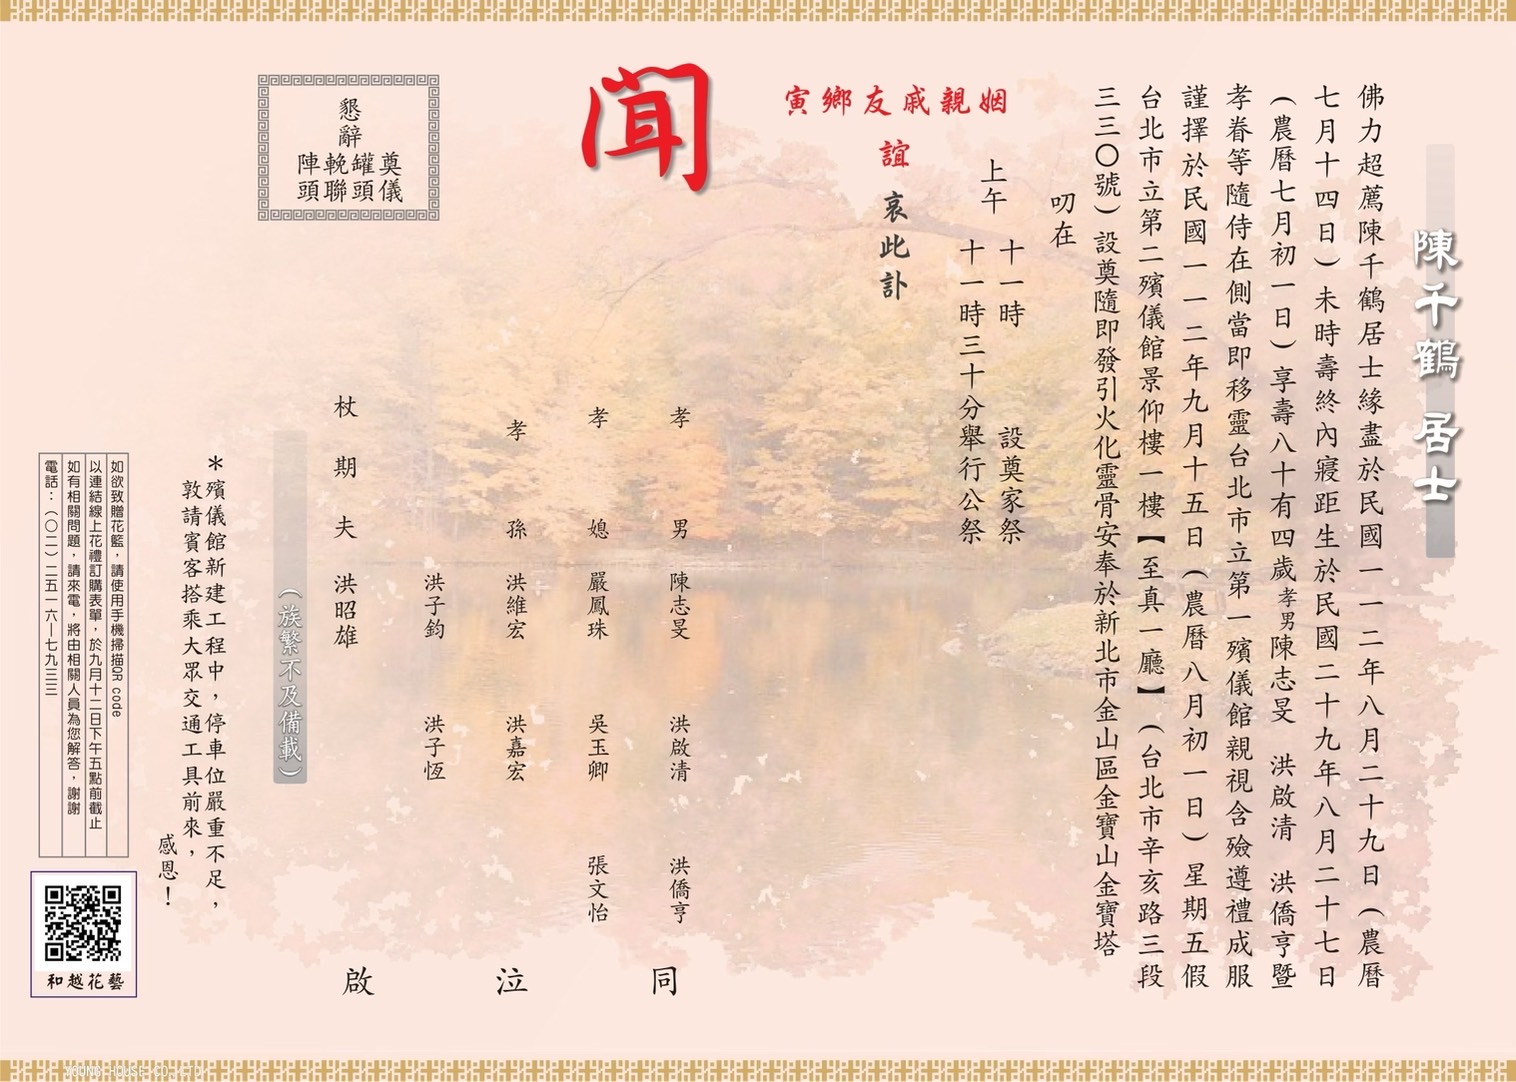 陳千鶴 居士
佛力超薦陳千鶴居士緣盡於民國一一二年八月二十九日（農曆
七月十四日）未時壽終內寢距生於民國二十九年八月二十七日
（農曆七月初一日）享壽八十有四歲孝男陳志旻 洪啟清 洪僑亨暨
孝眷等隨侍在側當即移靈台北市立第一殯儀館親視含殮遵禮成服
謹擇於民國一一二年九月十五日（農曆八月初一日）星期五假
台北市立第二殯儀館景仰樓一樓【至真一廳】（台北市辛亥路三段
三三〇號）設奠隨即發引火化靈骨安奉於新北市金山區金寶山金寶塔
叨在
上午
十一時 設奠家祭
十一時三十分舉行公祭
姻親戚友鄉寅
誼
哀此訃
聞
孝 男 陳志旻 洪啟清 洪僑亨 同
孝 媳 嚴鳳珠 吳玉卿 張文怡
孝 孫 洪維宏 洪嘉宏 泣
洪子鈞 洪子恆
杖期夫 洪昭雄 啟
（族繁不及備載）
懇辭
奠儀
罐頭
輓聯
陣頭
＊殯儀館新建工程中，停車位嚴重不足，
敦請賓客搭乘大眾交通工具前來，
感恩！
如欲致贈花籃，請使用手機掃描QR code
以連結線上花禮訂購表單，於九月十二日下午五點前截止
如有相關問題，請來電，將由相關人員為您解答，謝謝
電話：（〇二）二五一六—七九三三
和越花藝
YOUNG HOUSE CO., LTD